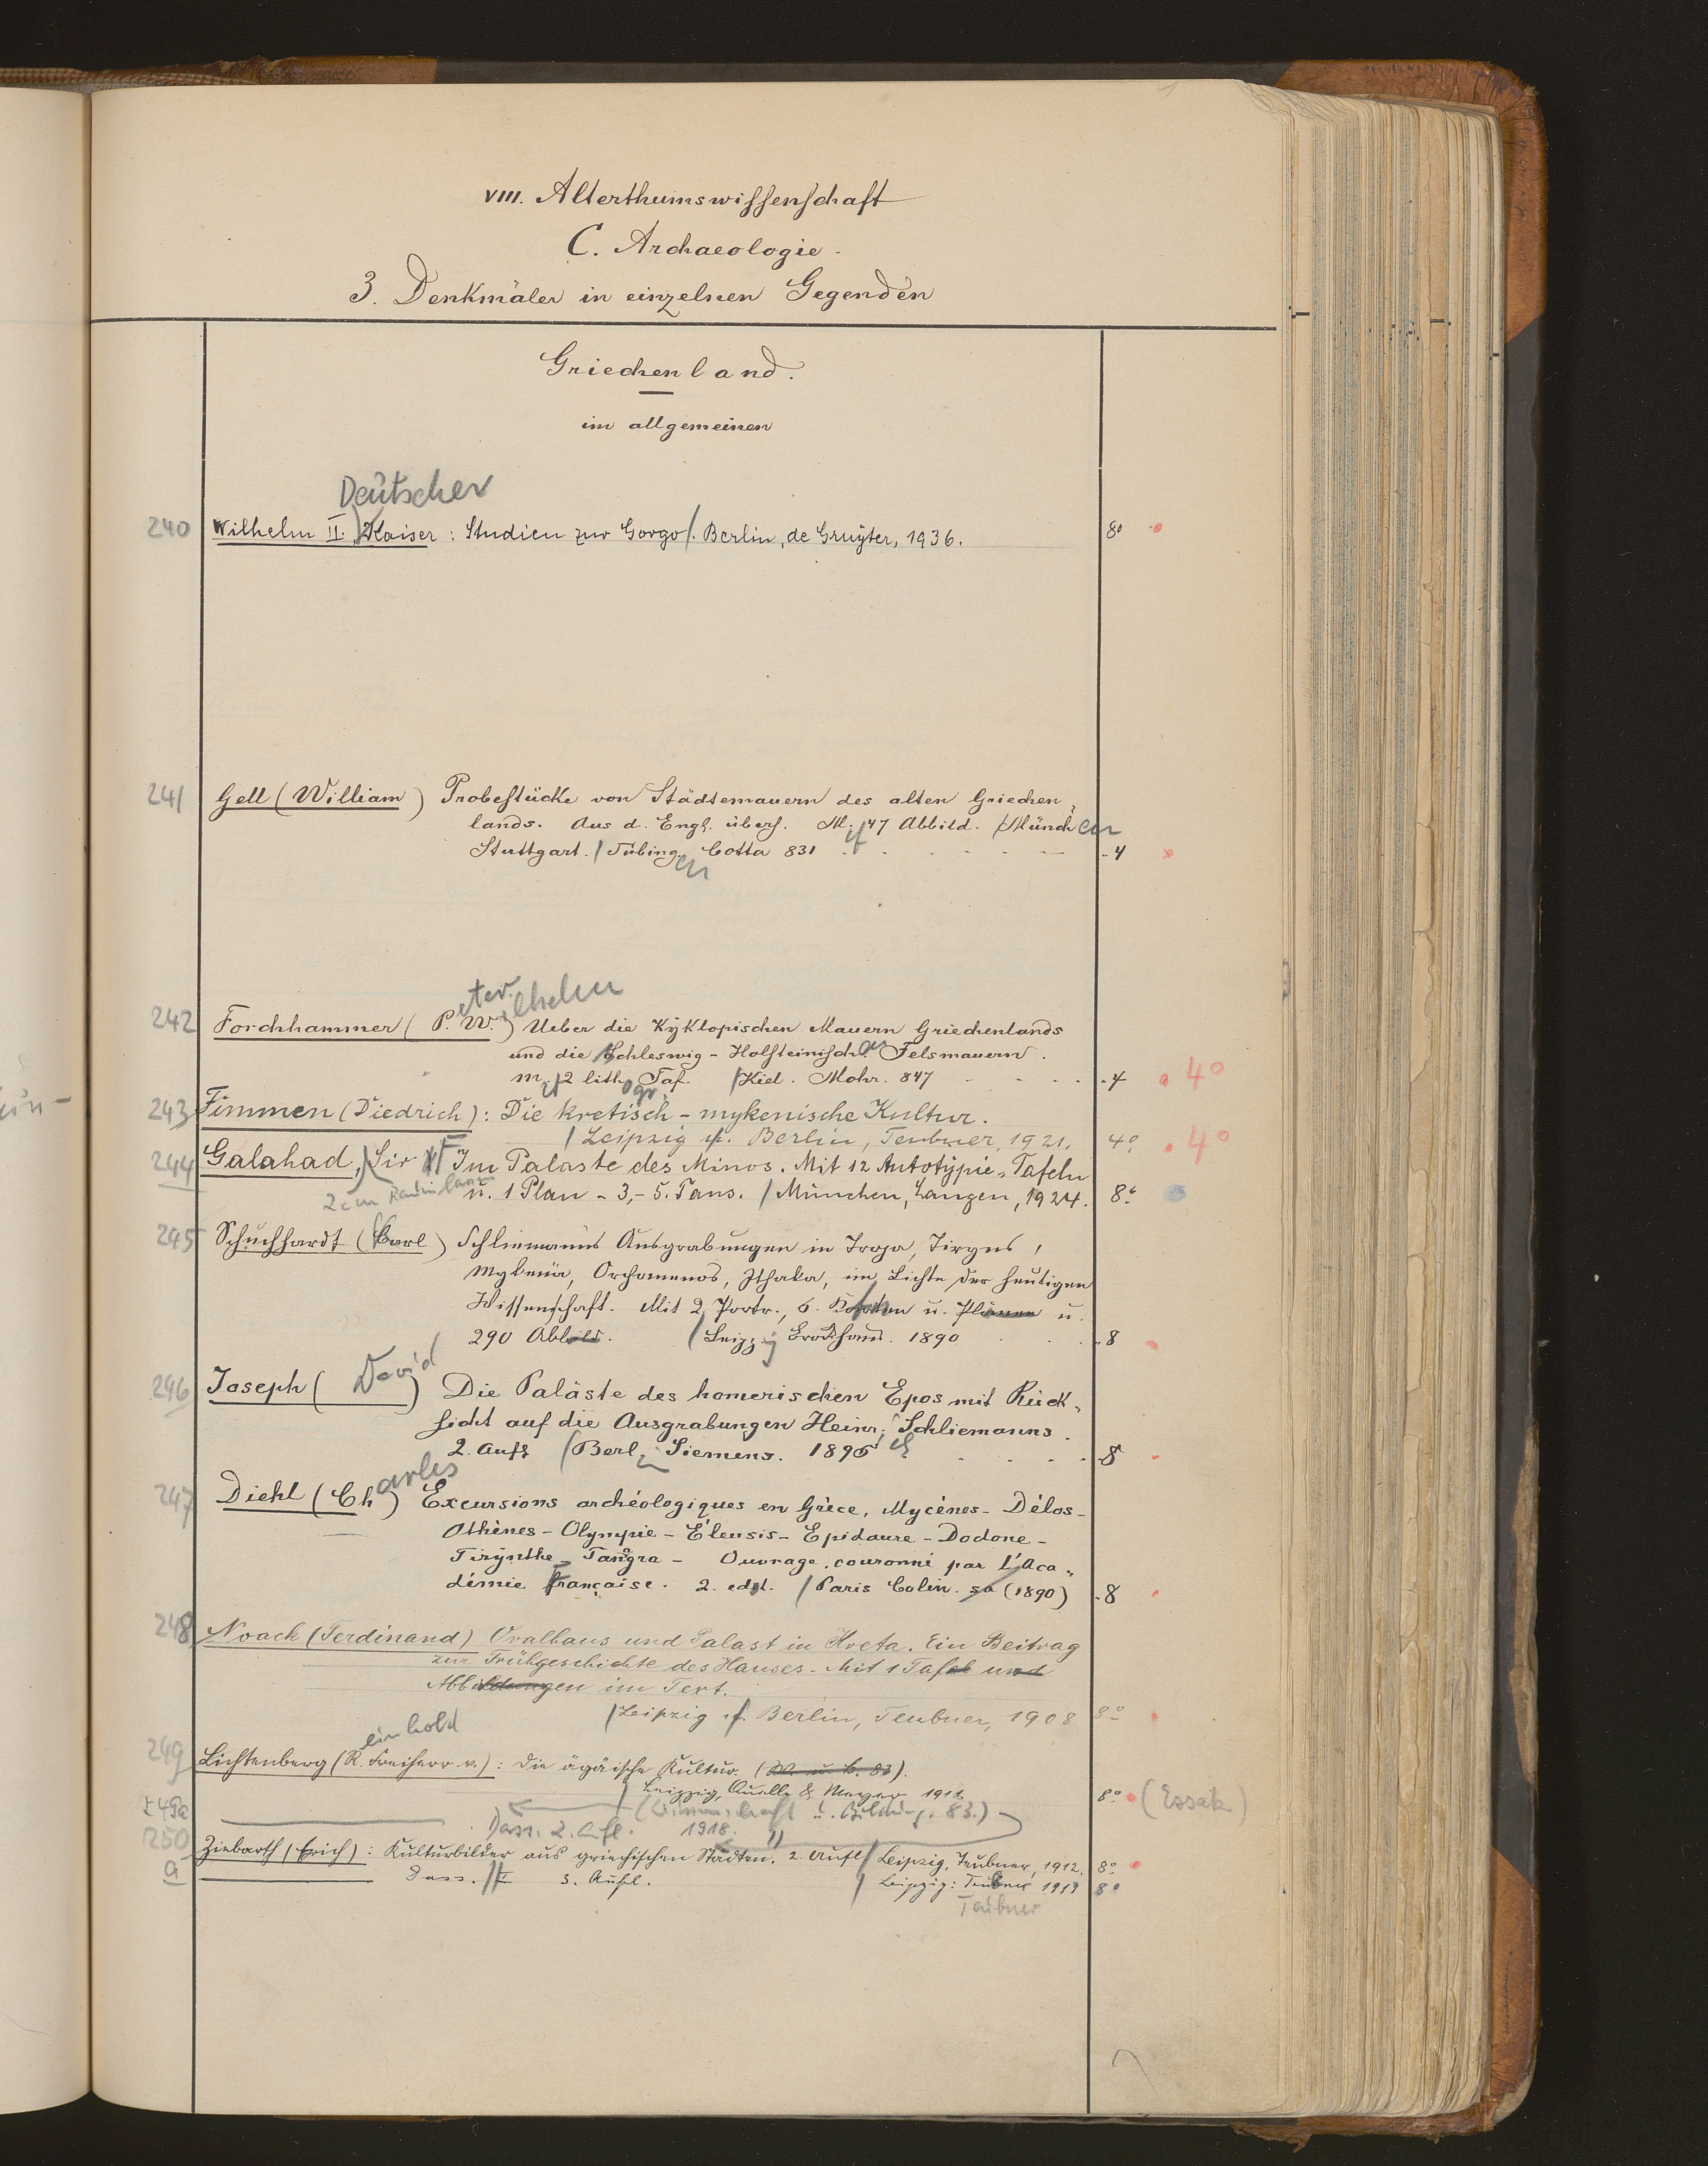 VIII. Alterthumswissenschaft
C. Archaeologie.
3. Denkmäler in einzelnen Gegenden
Griechenland.
im allgemeinen
Deutscher
240 Wilhelm II. Kaiser: Studien zur Gorgo. Berlin, de Gruyter, 1936. 8°
241 Gell (William) Probestücke von Städtemauern des alten Griechen-
lands. Aus d. Engl. übers. M. 47 Abbild. München
Stuttgart. Tübingen Cotta 831 4
eter ilhelm
242 Forchhammer (P. W.) Ueber die Kyklopischen Mauern Griechenlands
und die Schleswig-Holsteinisch. Felsmauern.
m. 2 lithogr. Taf. Kiel. Mohr. 847 4 4°
243 Fimmen (Diedrich): Die kretisch-mykenische Kultur.
Leipzig u. Berlin, Teubner, 1921. 4° 4°
244 Galahad, Sir Im Palaste des Minos. Mit 12 Autotypie-Tafeln
u. 1 Plan - 3,-5. Taus. München, Langen, 1924. 8°
245 Schuchhardt (Carl) Schliemanns Ausgrabungen in Troja, Tiryns,
Mykenä, Orchomenos, Ithaka, im Lichte der heutigen
Wissenschaft. Mit 2 Portr., 6. Karten u. Plänen u.
290 Abbild. Leipzig Brockhaus. 1890 8
246 Joseph (David) Die Paläste des homerischen Epos mit Rück-
sicht auf die Ausgrabungen Heinr. Schliemanns.
2. Aufl Berl. Siemens. 1895 8
247 Diehl (Charles) Excursions archéologiques en Grèce, Mycènes-Délos-
Athènes-Olympie-Éleusis-Epidaure-Dodone-
Tirynthe-Tanagra- Ouvrage couronné par L'Aca-
démie française. 2. ed. Paris Colin. sa (1890) 8
248 Noack (Ferdinand) Ovalhaus und Palast in Kreta. Ein Beitrag
zur Frühgeschichte des Hauses. Mit 1 Tafel und
Abbildungen im Text.
Leipzig u. Berlin, Teubner, 1908 8°
einhold
249 Lichtenberg (R. Freiherr v.): Die ägäische Kultur. (W. u. B. 83).
Leipzig, Quelle & Meyer 1911 8° (Essak)
(Wissenschaft u. Bildung. 83.)
249a Dass. 2. Aufl. 1918.
250 Ziebarth (Erich): Kulturbilder aus griechischen Städten. 2. Aufl Leipzig, Teubner, 1912. 8°
a Dass. 3. Aufl. Leipzig: Teubner 1919 8°
Teubner